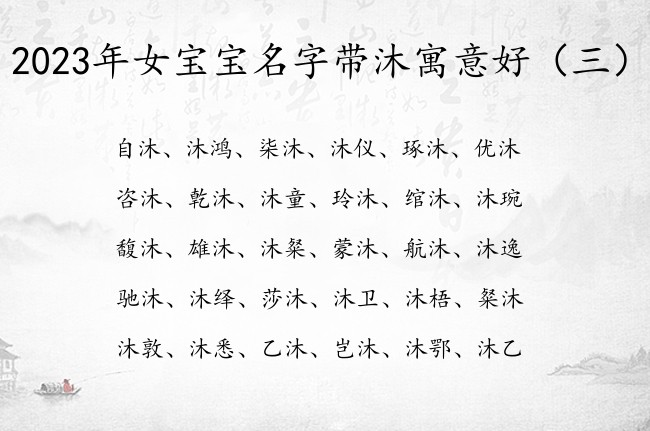 2023年女宝宝名字带沐寓意好（三）
自沐、沐鸿、柒沐、沐仪、琢沐、优沐
咨沐、乾沐、沐童、玲沐、绾沐、沐琬
馥沐、雄沐、沐粲、蒙沐、航沐、沐逸
驰沐、沐绎、莎沐、沐卫、沐梧、粲沐
沐敦、沐悉、乙沐、岂沐、沐鄂、沐乙